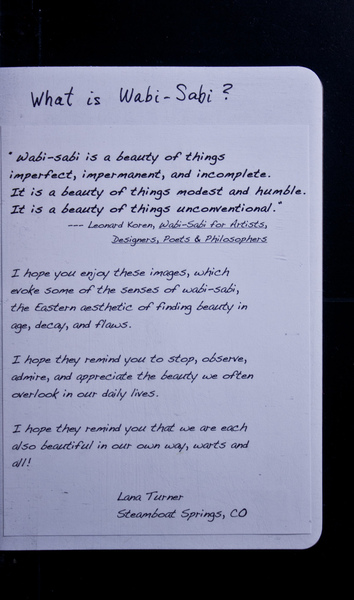 What is Wabi-Sabi?
"Wabi-sabi is a beauty of things
imperfect, impermanent, and incomplete.
It is a beauty of things modest and humble.
It is a beauty of things unconventional."
--- Leonard Koren, Wabi-Sabi for Artists,
Designers, Poets & Philosophers
I hope you enjoy these images, which
evoke some of the senses of wabi-sabi,
the Eastern aesthetic of finding beauty in
age, decay, and flaws.
I hope they remind you to stop, observe,
admire, and appreciate the beauty we often
overlook in our daily lives.
I hope they remind you that we are each
also beautiful in our own way, warts and
all!
Lana Turner
Steamboat Springs, CO